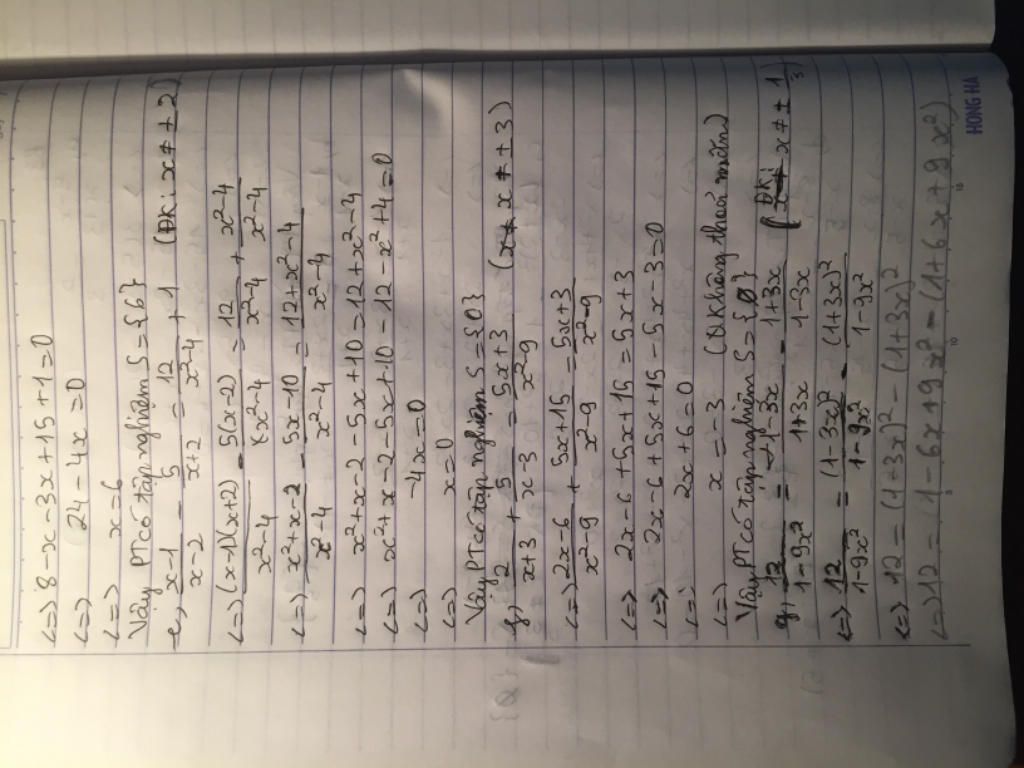 <=> 8 - x - 3x + 15 + 1 = 0
<=> 24 - 4x = 0
<=> x = 6
Vậy PT có tập nghiệm S = {6}
e, x-1/x-2 - 5/x+2 = 12/x²-4 + 1 (ĐK: x ≠ ± 2)
<=> (x-1)(x+2)/x²-4 - 5(x-2)/x²-4 = 12/x²-4 + x²-4/x²-4
<=> x²+x-2/x²-4 - 5x-10/x²-4 = 12+x²-4/x²-4
<=> x²+x-2-5x+10 = 12+x²-4
<=> x²+x-2-5x+10-12-x²+4=0
<=> -4x=0
<=> x=0
Vậy PT có tập nghiệm S={0}
f, 2/x+3 + 5/x-3 = 5x+3/x²-9 (x ≠ ± 3)
<=> 2x-6/x²-9 + 5x+15/x²-9 = 5x+3/x²-9
<=> 2x-6+5x+15=5x+3
<=> 2x-6+5x+15-5x-3=0
<=> 2x+6=0
<=> x=-3 (ĐK không thoả mãn)
Vậy PT có tập nghiệm S={Ø}
g, 12/1-9x² = 1-3x/1+3x - 1+3x/1-3x (ĐK: x ≠ ± 1/3)
<=> 12/1-9x² = (1-3x)²/1-9x² - (1+3x)²/1-9x²
<=> 12 = (1+3x)² - (1+3x)²
<=> 12 = (1-6x+9x² - (1+6x+9x²)
HONG HA